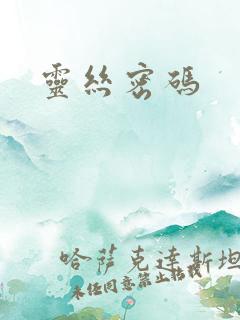 靈絲密碼
哈薩克達斯坦
未經同意禁止轉載